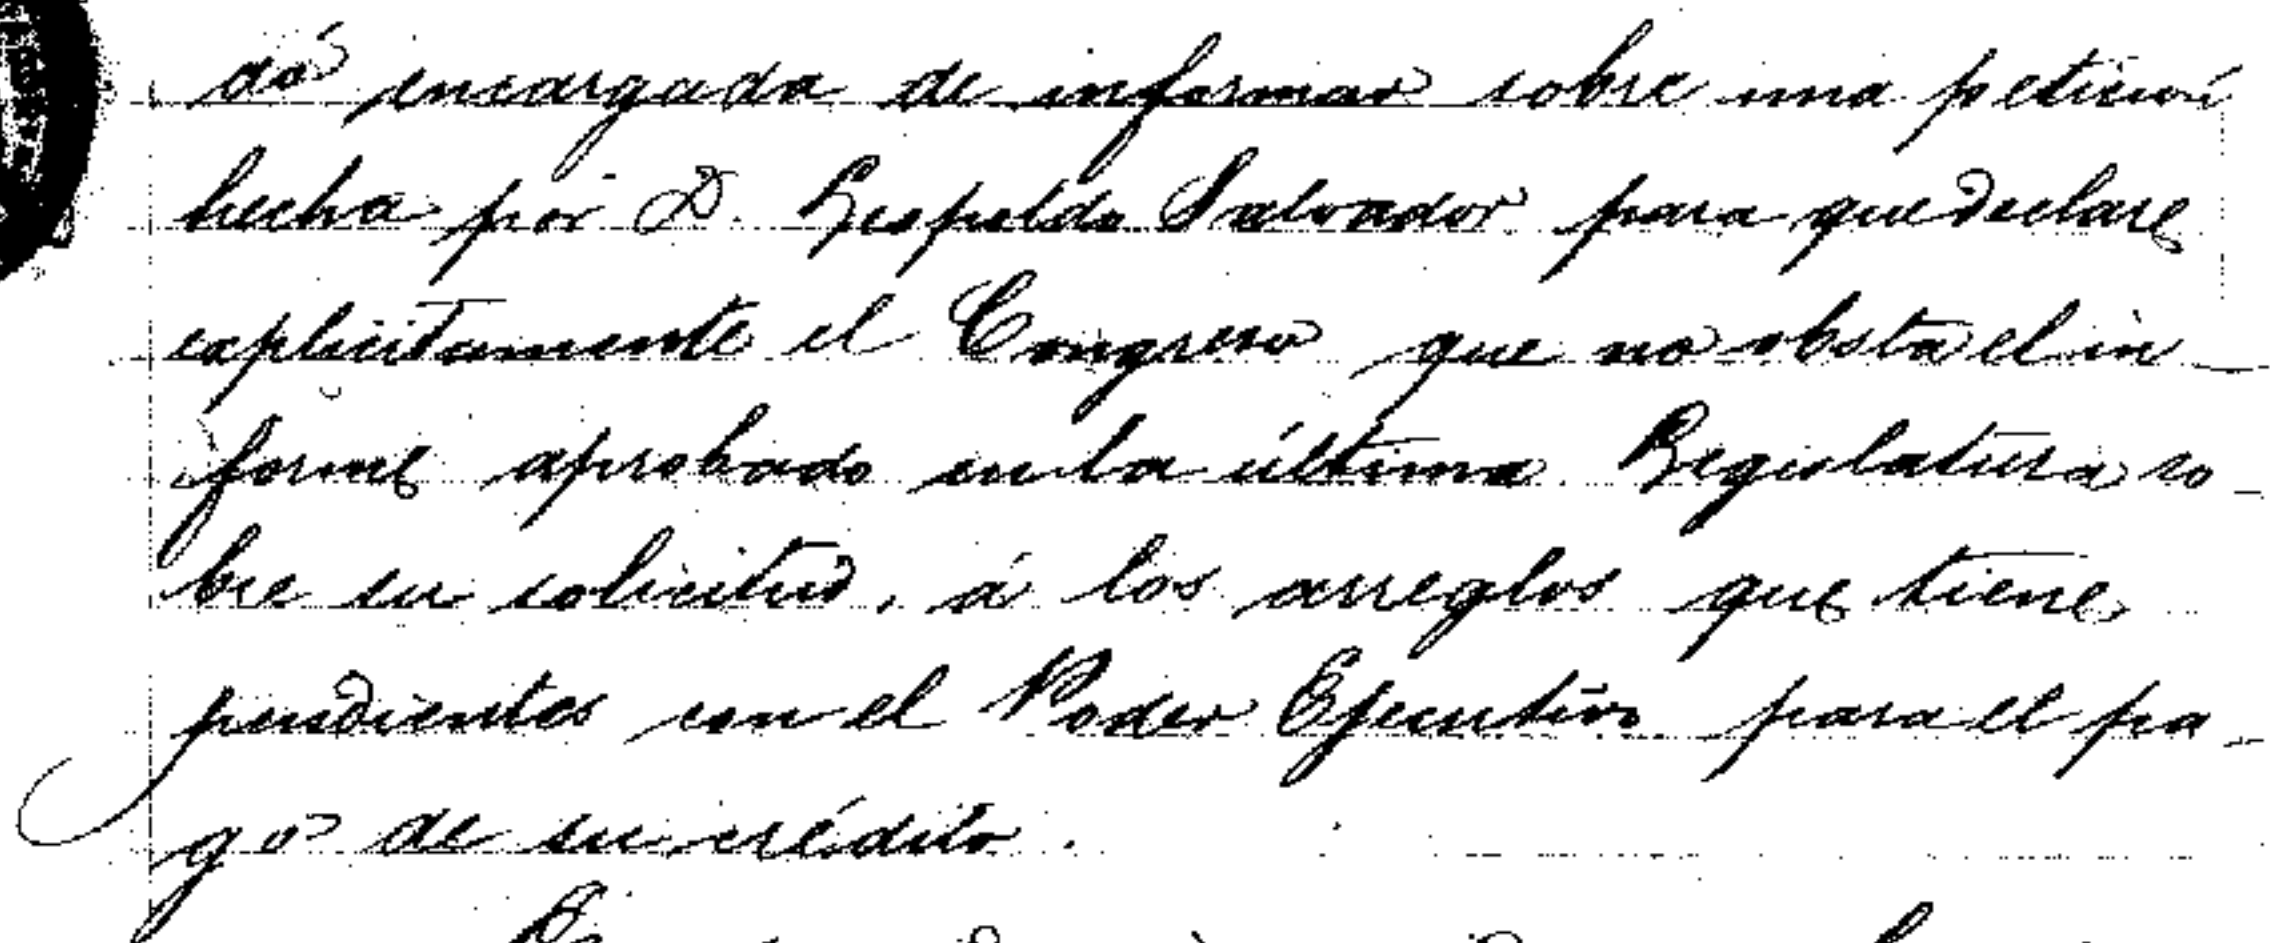 dó encargada de informar sobre una petición
hecha por D. Leopoldo Salvador para que declare
explicitamente el Congreso que no obsta el in-
forme aprobado en la última Legislatura so-
bre su solicitud, á los arreglos que tiene
pendientes con el Poder Ejecutivo para el pa-
go de su crédito.